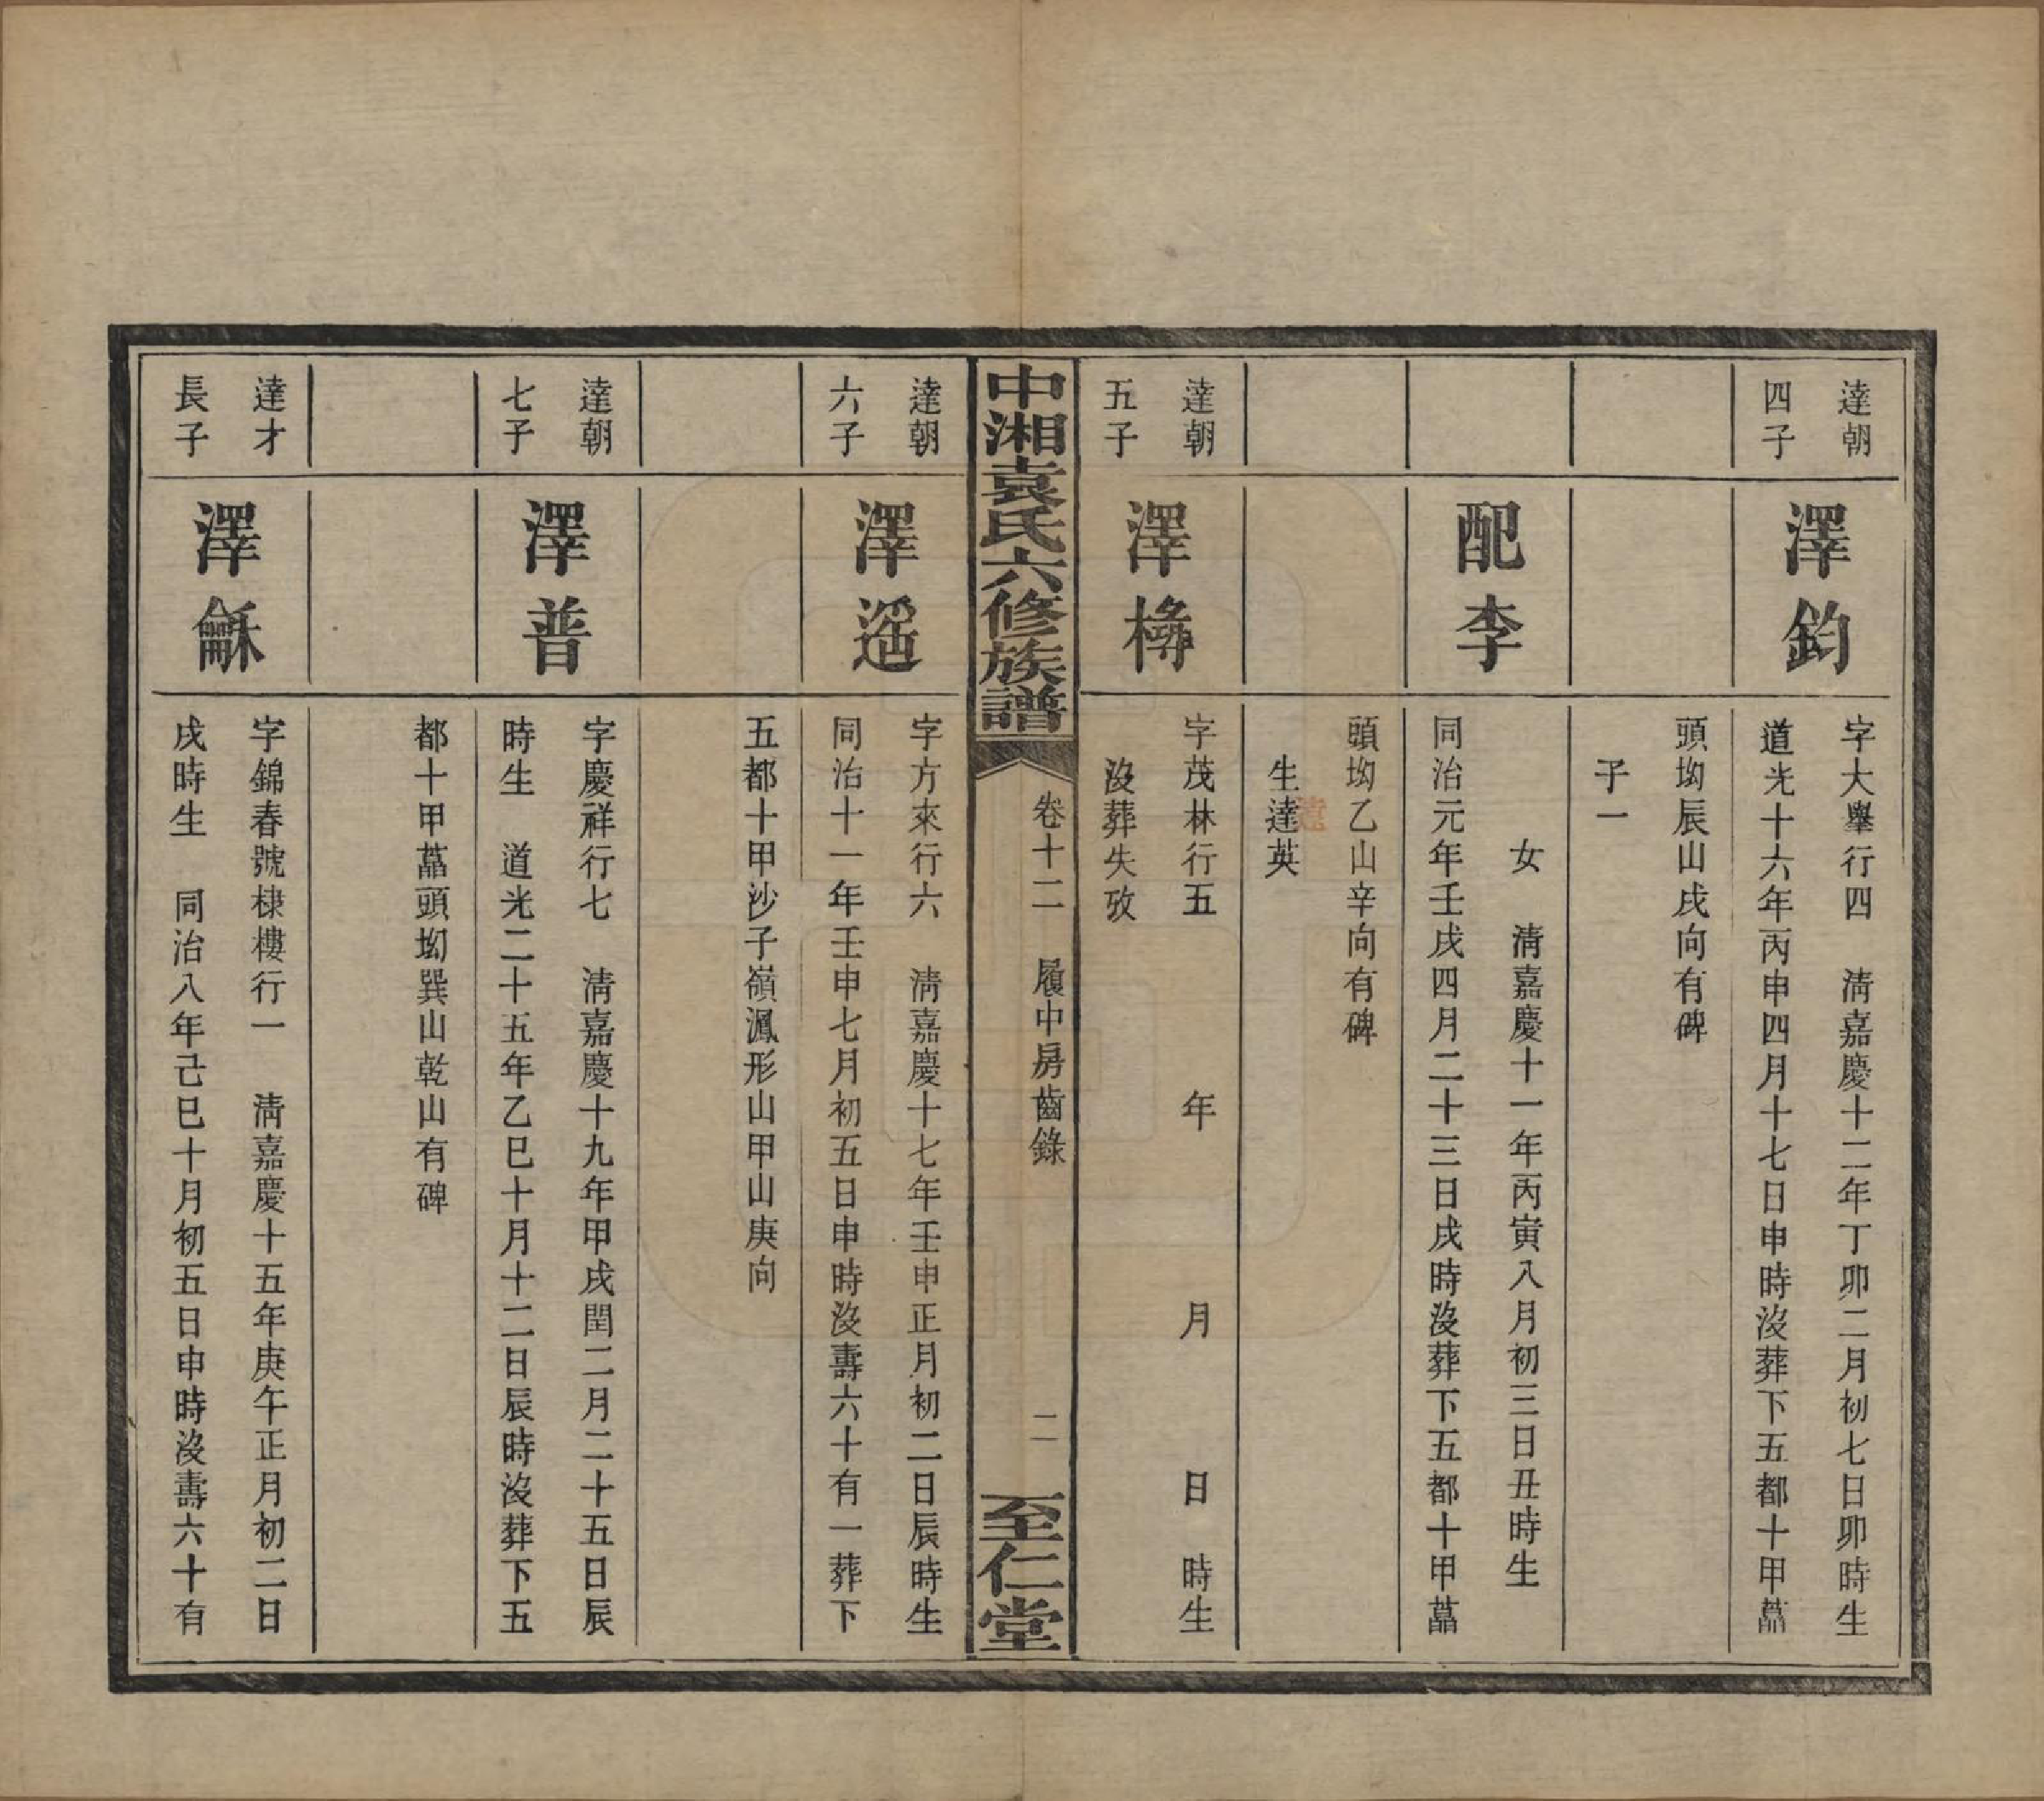 達朝
四子
澤鈞
字大舉行四　清嘉慶十二年丁卯二月初七日卯時生
道光十六年丙申四月十七日申時沒葬下五都十甲藠
頭坳辰山戌向有碑
子一
配李
女　清嘉慶十一年丙寅八月初三日丑時生
同治元年壬戌四月二十三日戌時沒葬下五都十甲藠
頭坳乙山辛向有碑
生達英
達朝
五子
澤橼
字茂林行五　年　月　日　時生
沒葬失攷
中湘袁氏六修族譜
卷十二　履中房齒錄
二
至仁堂
達朝
六子
澤遥
字方來行六　清嘉慶十七年壬申正月初二日辰時生
同治十一年壬申七月初五日申時沒壽六十有一葬下
五都十甲沙子嶺鳳形山甲山庚向
達朝
七子
澤普
字慶祥行七　清嘉慶十九年甲戌閏二月二十五日辰
時生　道光二十五年乙巳十月十二日辰時沒葬下五
都十甲藠頭坳巽山乾山有碑
達才
長子
澤龢
字錦春號棣樓行一　清嘉慶十五年庚午正月初二日
戌時生　同治八年己巳十月初五日申時沒壽六十有